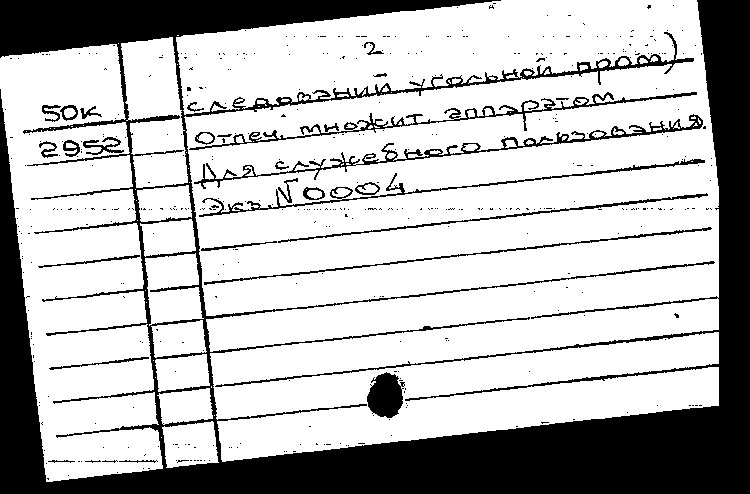 2
следований угольной пром)
50к
Отпеч. множит. аппаратом.
2952
Для служебного пользования.
Экз. №0004.